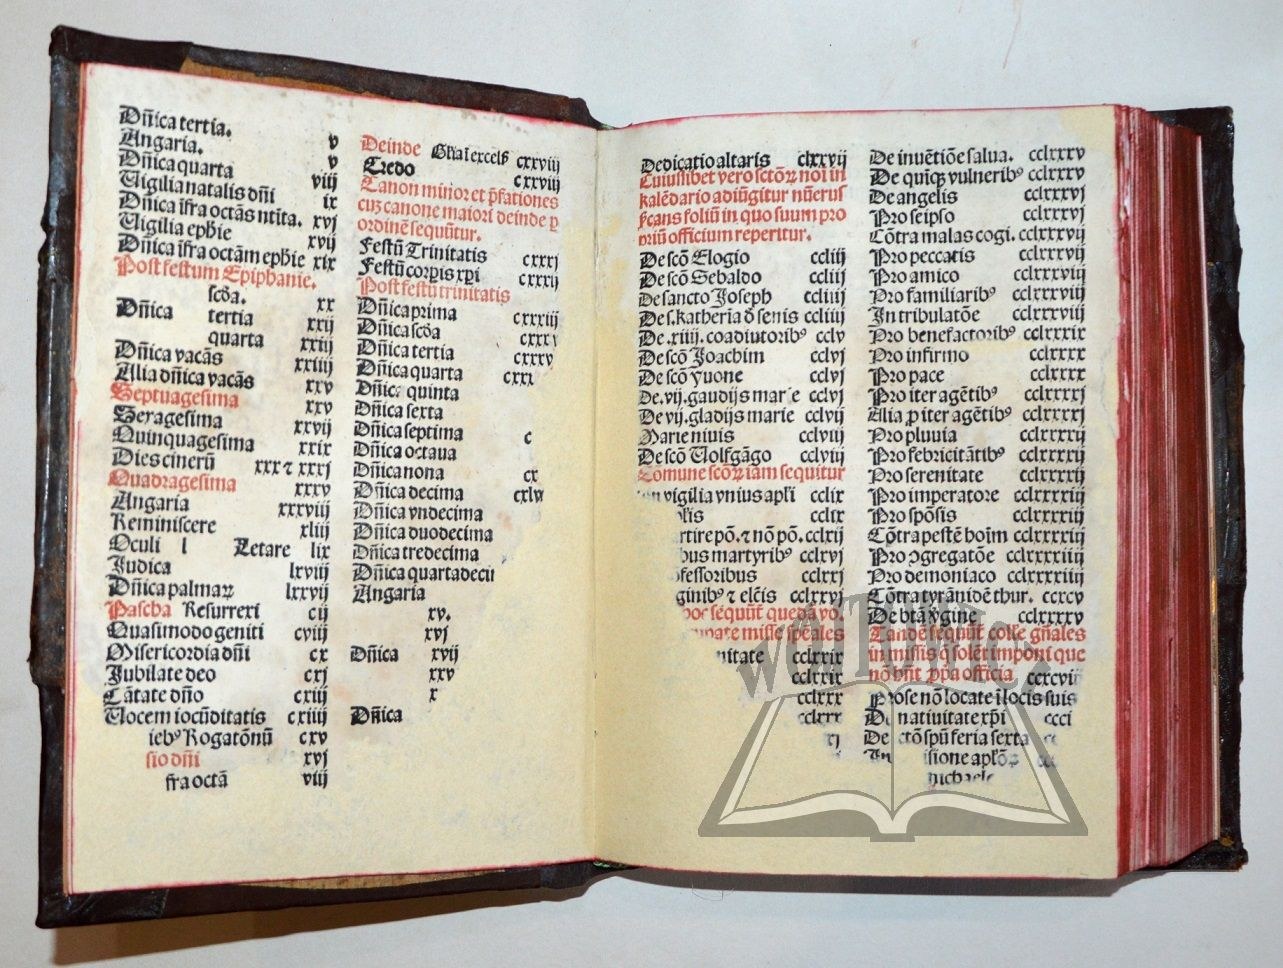 Dñica tertia. v
Angaria. v
Dñica quarta viij
Uigilia natalis dñi ix
Dñica ifra octãs ntita. xvj
Uigilia ephie xvij
Dñica ifra octãm ephie xix
Post festum Epiphanie.
scða. xx
Dñica tertia xxij
quarta xxiij
Dñica vacãs xxiiij
Alia dñica vacãs xxv
Septuagesima xxv
Sexagesima xxvij
Quinquagesima xxix
Dies cinerũ xxx ⁊ xxxj
Quadragesima xxxv
Angaria xxxviij
Reminiscere xliij
Oculi l Letare lix
Judica lxviij
Dñica palmaꝝ lxxvij
Pascha Resurrexi cij
Quasimodo geniti cviij
Misericordia dñi cx
Jubilate deo cxj
Cãtate dño cxij
Uocem iocũditatis cxiiij
iebꝰ Rogatõnũ cxv
sio dñi xvj
fra octã viij
Deinde Gl̃ia ĩ excelṡ cxxviij
Credo cxxviij
Canon minor et p̃fationes
cuz canone maiori deinde ꝑ
ordinẽ sequũtur.
Festũ Trinitatis cxxxj
Festũ corꝑis xp̃i cxxxij
Post festũ trinitatis
Dñica prima cxxxiij
Dñica scða cxxx
Dñica tertia cxxxv
Dñica quarta cxxx
Dñica quinta
Dñica sexta
Dñica septima c
Dñica octaua
Dñica nona cx
Dñica decima cxlv
Dñica vndecima
Dñica duodecima
Dñica tredecima
Dñica quartadeci
Angaria
xv.
xvj
Dñica xvij
xxv
x
Dñica
Dedicatio altaris clxxvij
Cuiuslibet vero sctõꝝ noĩ in
kalẽdario adiũgitur nũerus
p̃cans foliũ in quo suum pro
priũ officium reperitur.
De scõ Elogio ccliij
De scõ Sebaldo ccliij
De sancto Joseph ccliiij
De s. katherĩa ð senis ccliiij
De .xiiij. coadiutoribꝰ cclv
De scõ Joachim cclvj
De scõ yuone cclvj
De .vij. gaudijs marie cclvj
De vij. gladijs marie cclvij
Marie niuis cclviij
De scõ Wolfgãgo cclviij
Comune scõꝝ iam sequitur
vigilia vnius apl̃i cclix
cclix
rtire põ. ⁊ nõ põ. cclxij
bus martyribꝰ cclxvj
fessoribus cclxxj
ginibꝰ ⁊ elẽis cclxvj
hoc sequũt quedã vo.
misse sp̃ales
nitate cclxxix
cclxxix
cclxxx
cclxxx
De inuẽtiõe salua. cclxxxv
De quiqꝫ vulneribꝰ cclxxxv
De angelis cclxxxvj
Pro seipso cclxxxvj
Cõtra malas cogi. cclxxxvij
Pro peccatis cclxxxvij
Pro amico cclxxxviij
Pro familiaribꝰ cclxxxviij
In tribulatõe cclxxxviij
Pro benefactoribꝰ cclxxxix
Pro infirmo cclxxxx
Pro pace cclxxxx
Pro iter agẽtibꝰ cclxxxxj
Alia ꝓ iter agẽtibꝰ cclxxxxj
Pro pluuia cclxxxxij
Pro febricitãtibꝰ cclxxxxij
Pro serenitate cclxxxxij
Pro imperatore cclxxxxiij
Pro spõsis cclxxxxiij
Cõtra pestẽ hoĩm cclxxxxiij
Pro ꝯgregatõe cclxxxxiiij
Pro demoniaco cclxxxxiiij
Cõtra tyrãnidẽ thur. ccxcv
De btã ꝟgine cclxxxxv
Tandẽ sequũt coll̃e gñales
in missis q̃ solẽt imponi que
nõ hñt ꝓp̃a officia ccxcvij
Prose nõ locate ĩ locis suis
De natiuitate xp̃i ccci
De ctõ spũ feria sexta
isione apl̃oꝝ
michael
WÓJTOWICZ